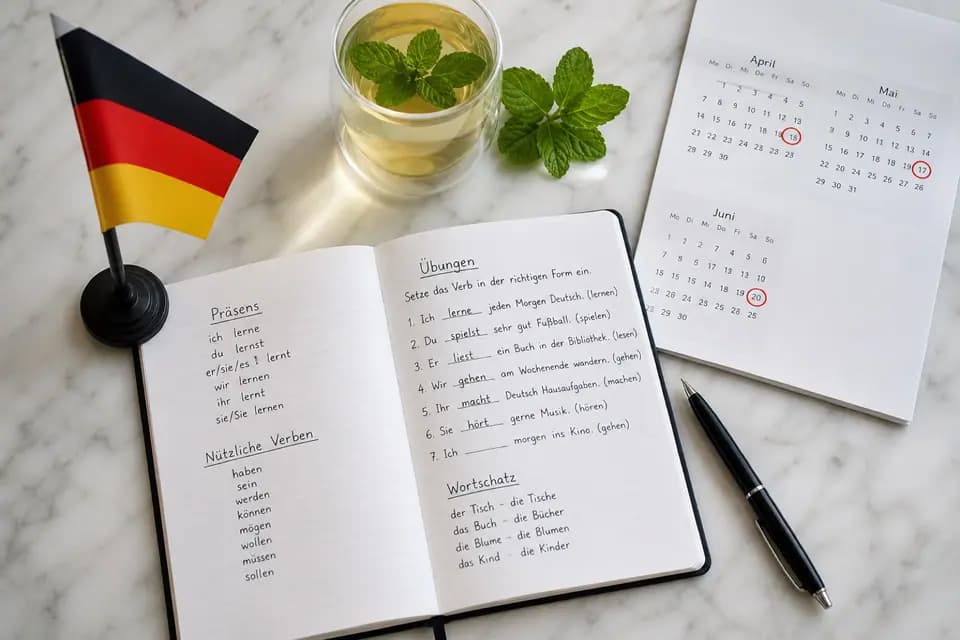 Präsens
ich lerne
du lernst
er/sie/es lernt
wir lernen
ihr lernt
sie/Sie lernen
Nützliche Verben
haben
sein
werden
können
mögen
wollen
müssen
sollen
Übungen
Setze das Verb in der richtigen Form ein.
1. Ich lerne jeden Morgen Deutsch. (lernen)
2. Du spielst sehr gut Fußball. (spielen)
3. Er liest ein Buch in der Bibliothek. (lesen)
4. Wir gehen am Wochenende wandern. (gehen)
5. Ihr macht Deutsch Hausaufgaben. (machen)
6. Sie hört gerne Musik. (hören)
7. Ich ______ morgen ins Kino. (gehen)
Wortschatz
der Tisch - die Tische
das Buch - die Bücher
die Blume - die Blumen
das Kind - die Kinder
April
Mo Di Mi Do Fr Sa So
1 2 3 4 5
7 8 9 10 11 12 13
14 15 16 17 18 18
21 22 23
28 29 30
Mai
Mo Di Mi Do Fr Sa So
1 2 3 4 5 6 7
9 10 11 12 13 14
15 16 17 19 17
22 20 26
29 30 31
Juni
Mo Di Mi Do Fr Sa So
1 2 3 4 5 6
7 8 13 10
15 14 18 19 20
23 25
28 29 30